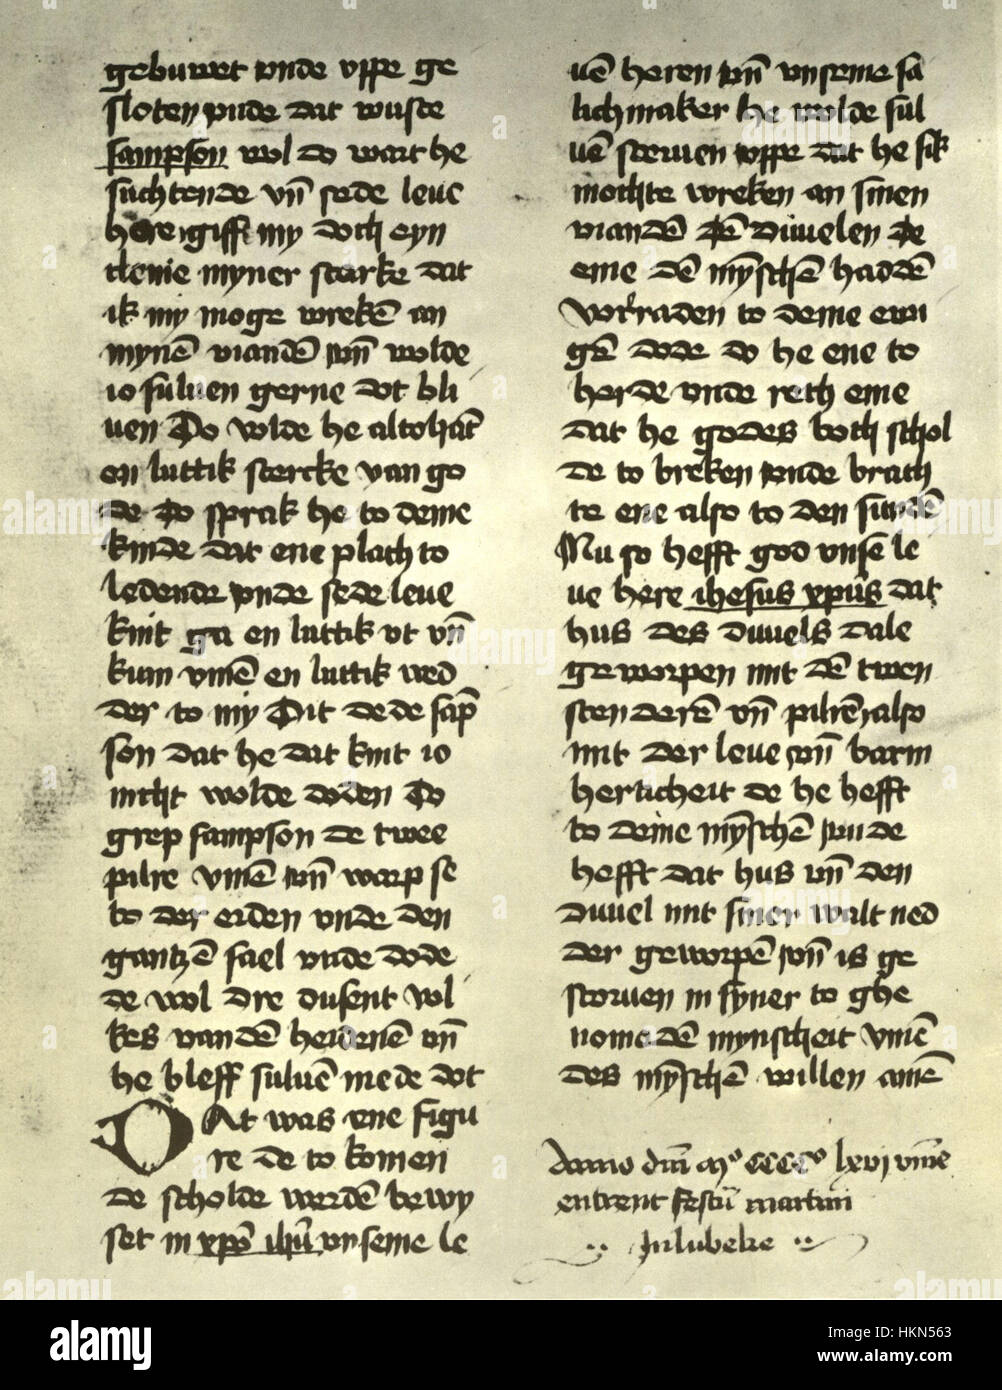 gebuwet vnde vppe ge
sloten vnde dat wuste
sampson wol do wart he
suchtende vn̄ sede leue
here giff my doch eyn
cleine myner starke dat
ik my moge wrekē an
mynē viandē vn̄ wolde
io suluen gerne dot bli
uen Do wolde he altohāt
en luttik stercke van go
de Do sprak he to deme
kinde dat ene plach to
ledende vnde sede leue
kint ga en luttik vt vn̄
kum vm̄e en luttik wed
der to my Dit dede sap̄
son dat he dat kint io
nicht wolde doden Do
grep sampson de twee
pilre vm̄e vn̄ warp se
to der erden vnde den
gantzē sael vnde dode
de wol dre dusent vol
kes van dē heidenē vn̄
he bleff suluē mede dot
DAt was ene figu
re de to komen
de scholde werdē bewy
set in xp̄o ih̄u vnseme le
uē heren vn̄ vnseme sa
lichmaker he wolde sul
uē steruen vppe dat he sik
mochte wreken an sinen
viandē dē duuelen de
eme dē mȳschē haddē
vorraden to deme ewi
gē dode do he ene to
herde vnde reth eme
dat he godes both schol
de to breken vnde brach
te ene also to den sundē
Nu so hefft god vnse le
ue here ihesus xp̄us dat
hus des duuels dale
geworpen mit dē twen
sten derē vn̄ pilrē also
mit der leue vn̄ barm
herticheit de he hefft
to deme mȳschē vnde
hefft dat hus vn̄ den
duuel mit siner walt ned
der geworpē vn̄ is ge
storuen in syner to ghe
nomedē mynscheit vm̄e
des mȳschē willen amē
Anno dn̄i mº ccccº lxvj vm̄e
entrent festū martini
Jn lubeke
alamy
Image ID: HKN563
www.alamy.com